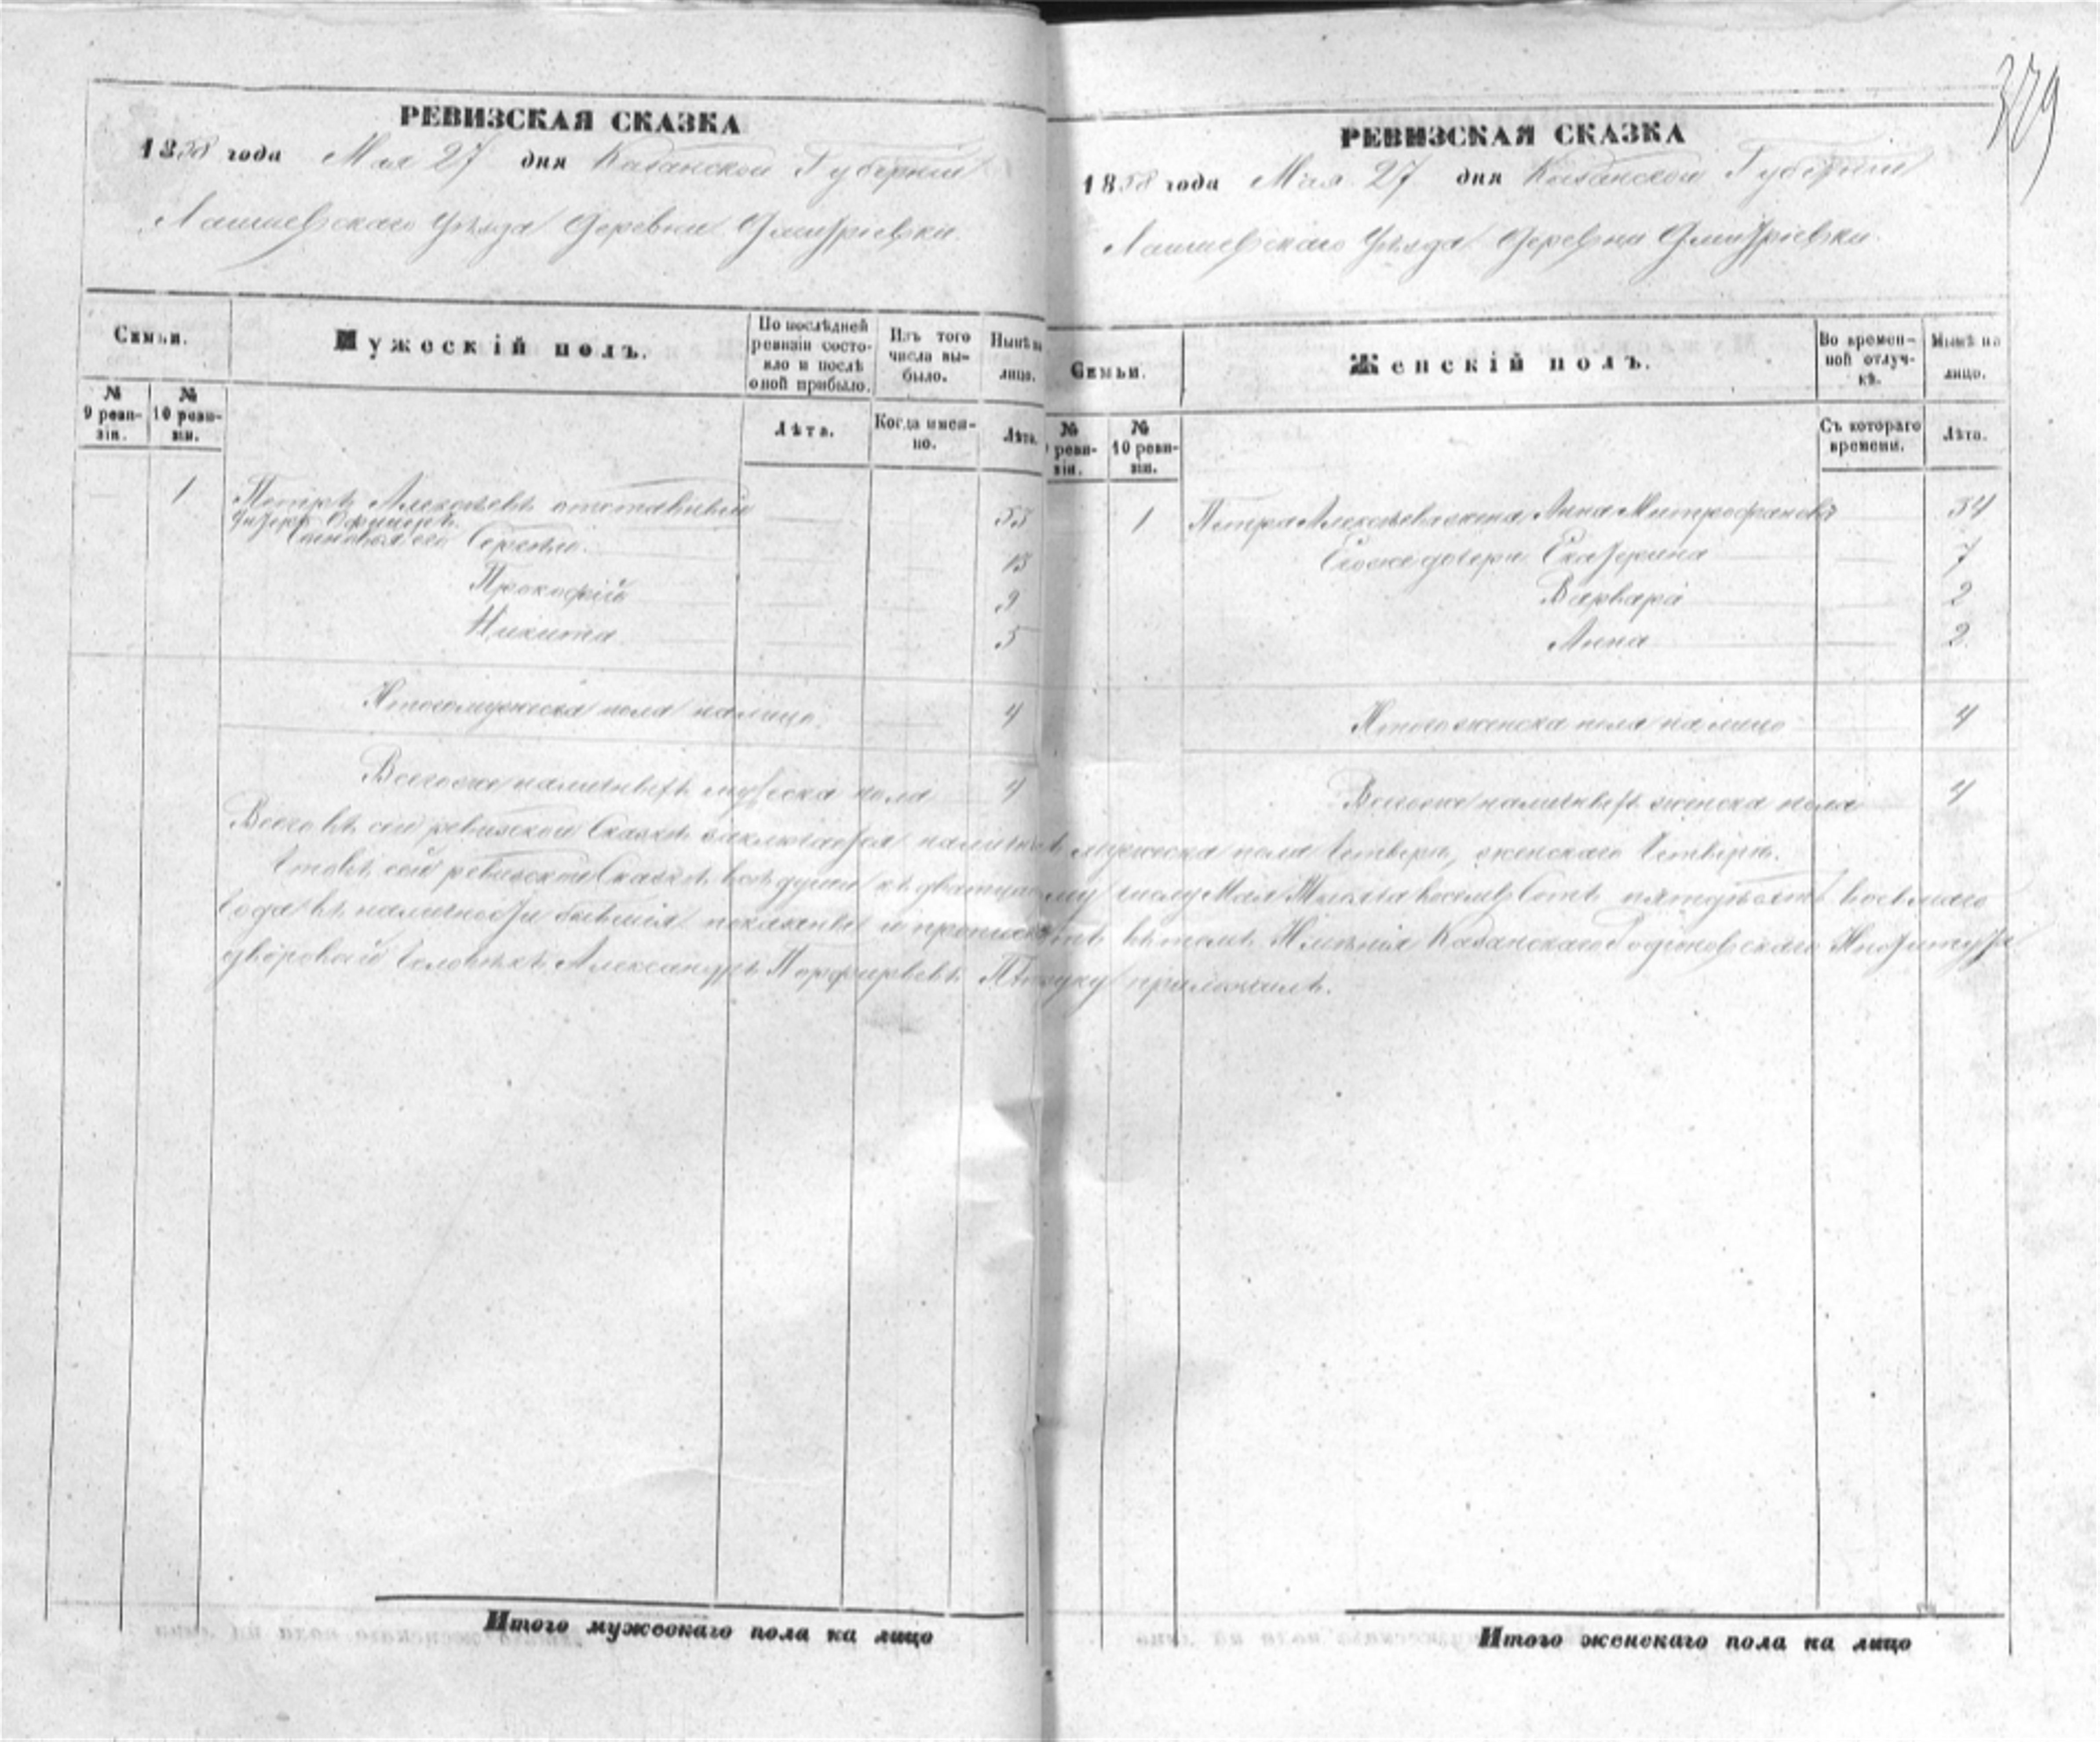 379
РЕВИЗСКАЯ СКАЗКА
1858 года Мая 27 дня Казанской Губерніи
Лаишевскаго Уѣзда деревни Дмитріевки.
Семьи.
Мужескій полъ.
По послѣдней ревизіи состояло и послѣ оной прибыло.
Изъ того числа выбыло.
Нынѣ на лицо.
№ 9 ревизіи.
№ 10 ревизіи.
Лѣта.
Когда именно.
Лѣта.
1 Петръ Алексѣевъ отставной 55
Унтеръ Офицеръ.
Сыновья его Сергѣй. 13
Прокофій 9
Никита 5
Итого мужеска пола на лицо. 4
Всего же наличныхъ мужеска пола 4
РЕВИЗСКАЯ СКАЗКА
1858 года Мая 27 дня Казанской Губерніи
Лаишевскаго Уѣзда деревни Дмитріевки.
Семьи.
Женскій полъ.
Во временной отлучкѣ.
Нынѣ на лицо.
№ ревизіи.
№ 10 ревизіи.
Съ котораго времени.
Лѣта.
1 Петра Алексѣева жена Анна Митрофанова 34
Его же дочери Екатерина 7
Варвара 2
Анна 2
Итого женска пола на лицо 4
Всего же наличныхъ женска пола 4
Всего въ сей ревизской Сказкѣ заключается наличныхъ мужеска пола четверо, женскаго четверо.
Что въ сей ревизской Сказкѣ всѣ души къ двадцатому числу Мая Тысяча восемь Сотъ пятьдесятъ восьмаго
Года въ наличности бывшія показаны и въ томъ Имѣнія Казанскаго Родіоновскаго Института
дворовый человѣкъ Александръ Порфирьевъ руку приложилъ.
Итого мужескаго пола на лицо
Итого женскаго пола на лицо